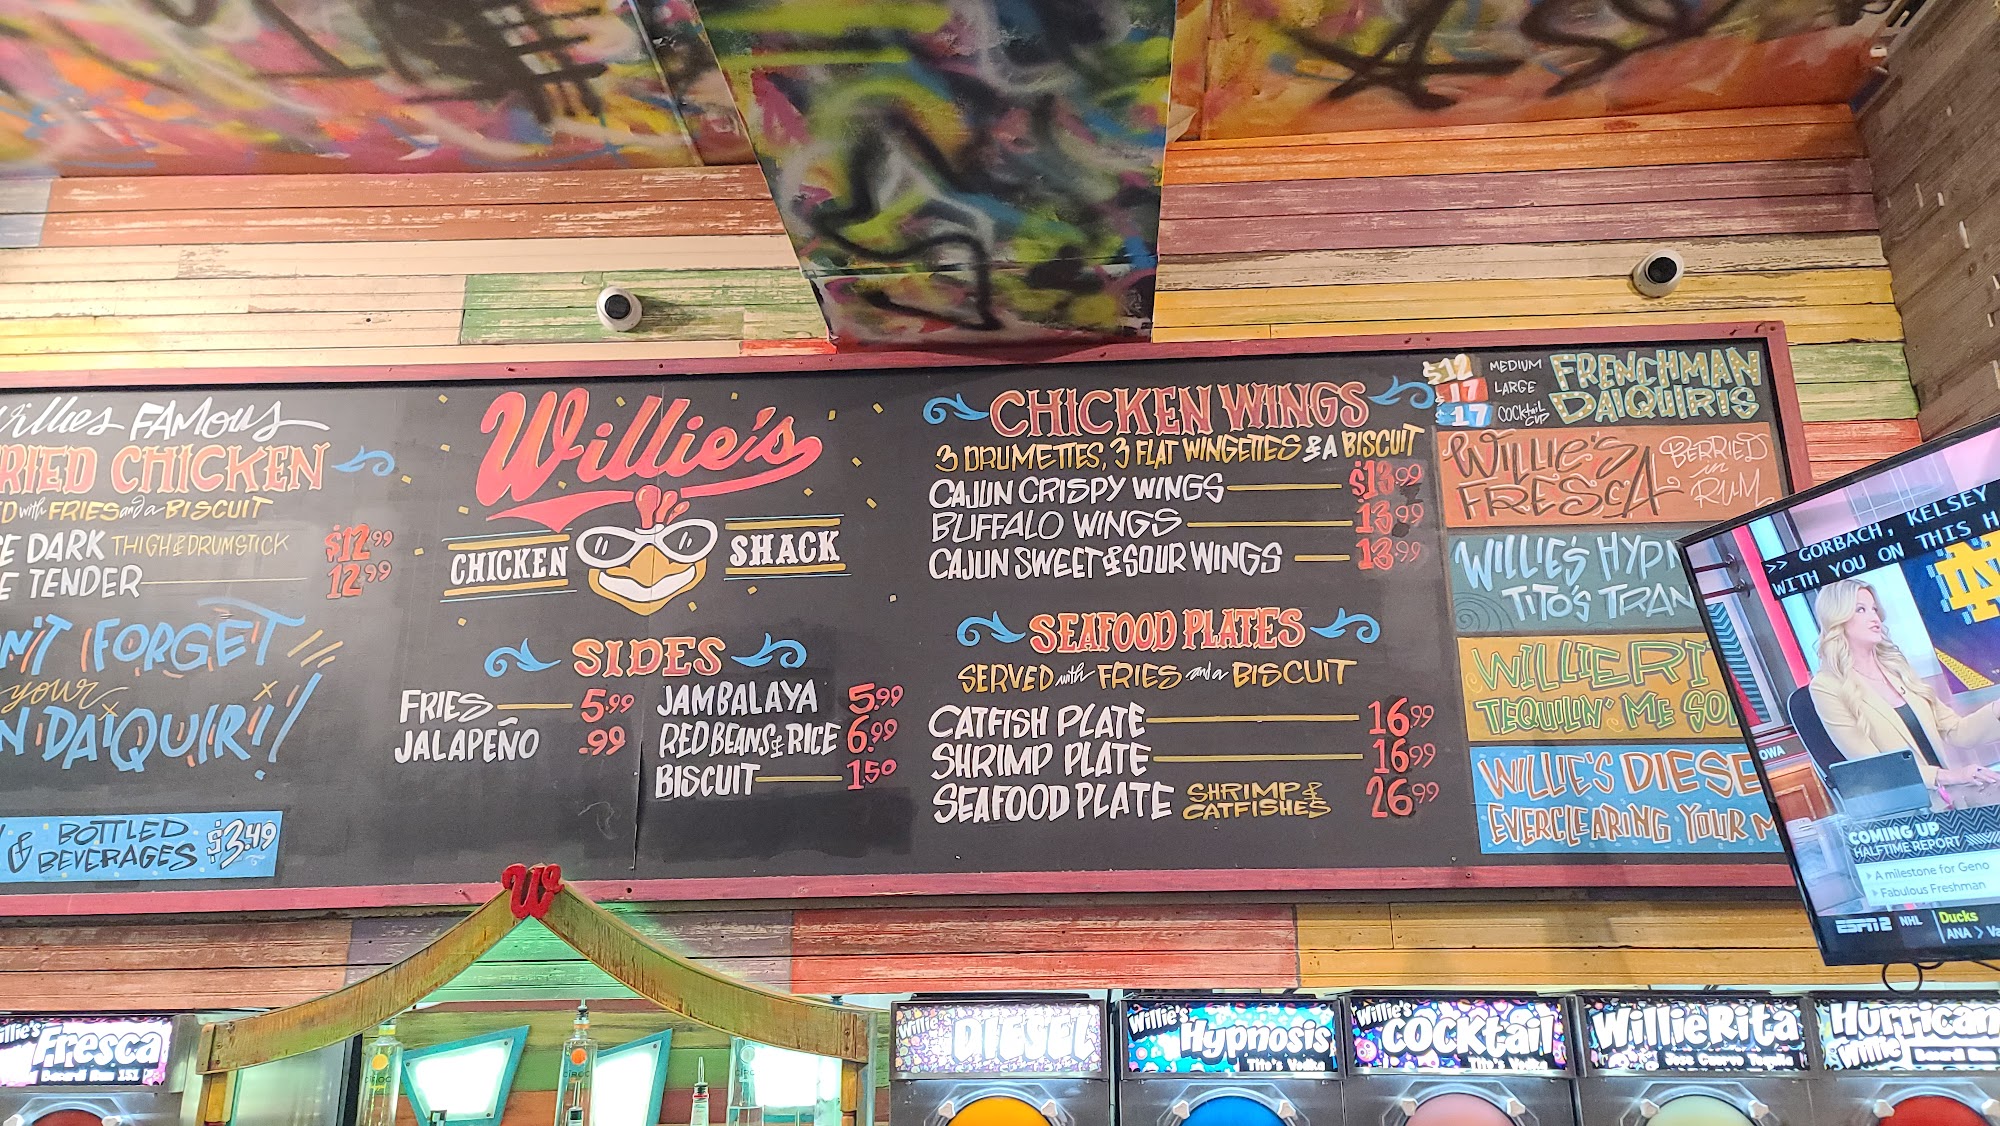 Willies FAMOUS
RIED CHICKEN
with FRIES and a BISCUIT
DARK THIGH & DRUMSTICK $12.99
TENDER 12.99
N'T FORGET
your
N DAIQUIRI!
& BOTTLED BEVERAGES $3.49
Willie's
CHICKEN SHACK
SIDES
FRIES 5.99
JALAPEÑO .99
JAMBALAYA 5.99
RED BEANS & RICE 6.99
BISCUIT 1.50
CHICKEN WINGS
3 DRUMETTES, 3 FLAT WINGETTES & A BISCUIT
CAJUN CRISPY WINGS $13.99
BUFFALO WINGS 13.99
CAJUN SWEET & SOUR WINGS 13.99
SEAFOOD PLATES
SERVED with FRIES and a BISCUIT
CATFISH PLATE 16.99
SHRIMP PLATE 16.99
SEAFOOD PLATE SHRIMP & CATFISHES 26.99
$12 MEDIUM
17 LARGE
$17 COCKTAIL CUP
FRENCHMAN
DAIQUIRIS
WILLIE'S FRESCA
BERRIED in RUM
WILLIE'S HYPN
TITO'S TRAN
WILLIERI
TEQUILIN' ME SO
WILLIE'S DIESE
EVERCLEARING YOUR M
>> GORBACH, KELSEY
WITH YOU ON THIS H
ND
OWA
COMING UP
HALFTIME REPORT
A milestone for Geno
Fabulous Freshman
ESPN2 NHL Ducks
ANA > Va
W
illie's Fresca
Bacardi Rum 151
Willie's DIESEL
Willie's Hypnosis
Tito's Vodka
Willie's COCKtail
Tito's Vodka
WillieRita
Jose Cuervo Tequila
Hurrican
Willie
Bacardi Rum
CIROC
CIROC